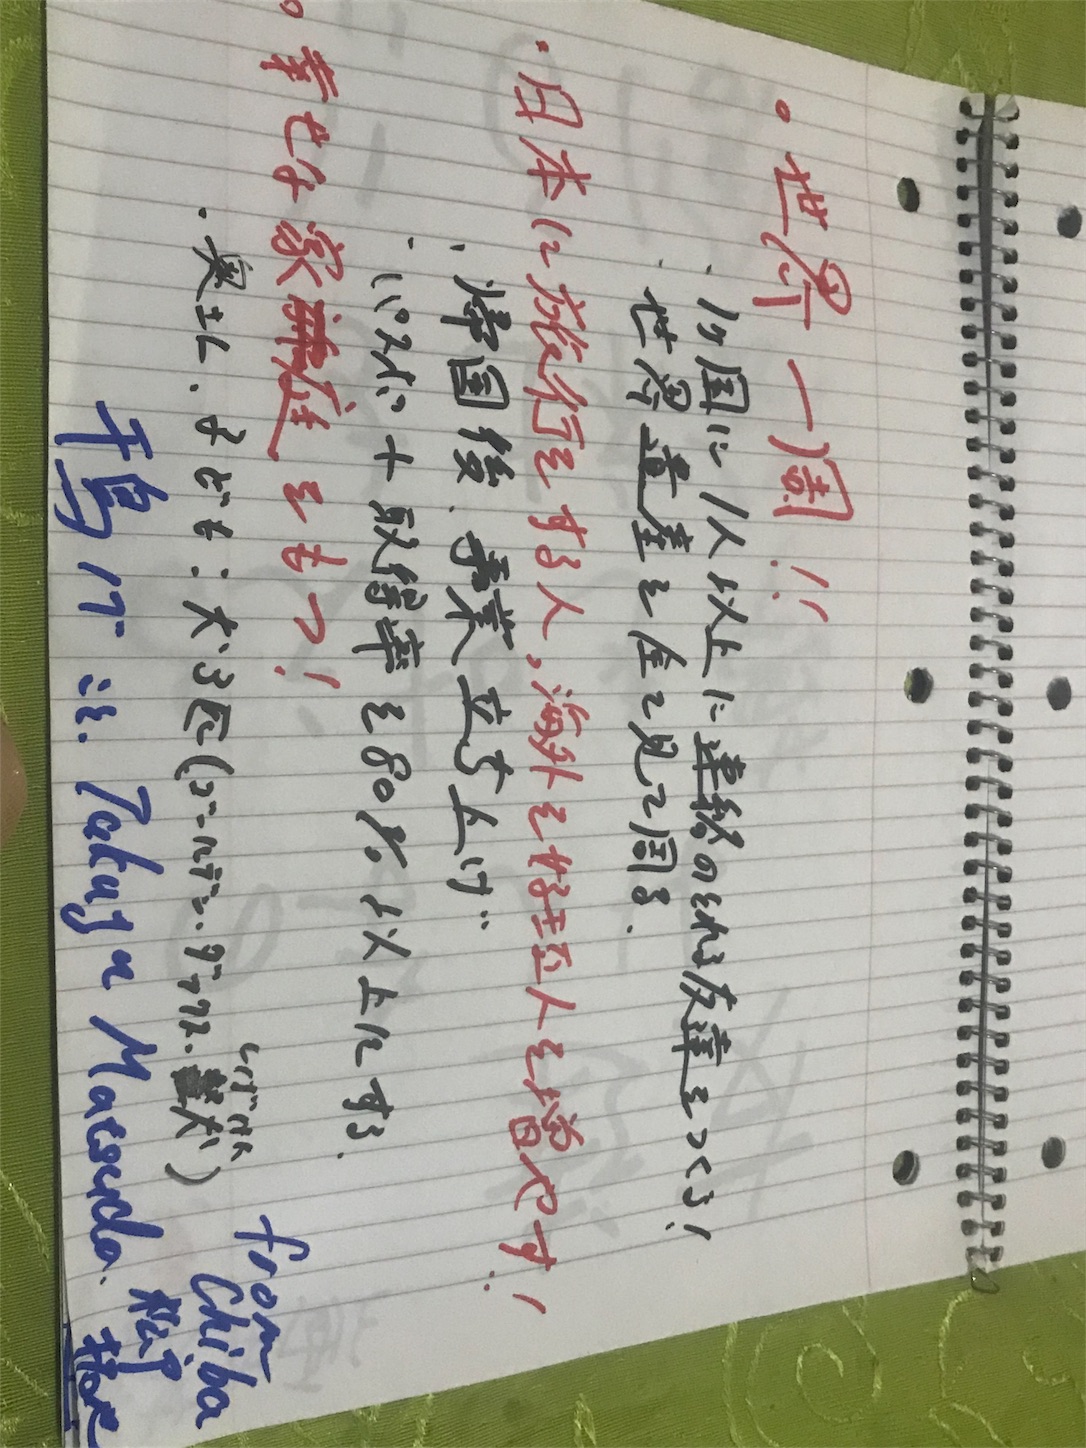 ・世界一周!!
・1ヶ国に1人以上に連絡のとれる友達をつくる!
・世界遺産を全て見て周る.
・日本に旅行をする人、海外を好きな人を増やす!!
・帰国後、事業立ち上げ
・パスポート取得率を80%以上にする.
・幸せな家庭をもつ!
・奥さん、子ども:犬3匹(ゴールデン.
しばけん
from Chiba
Takuya Matsuda.